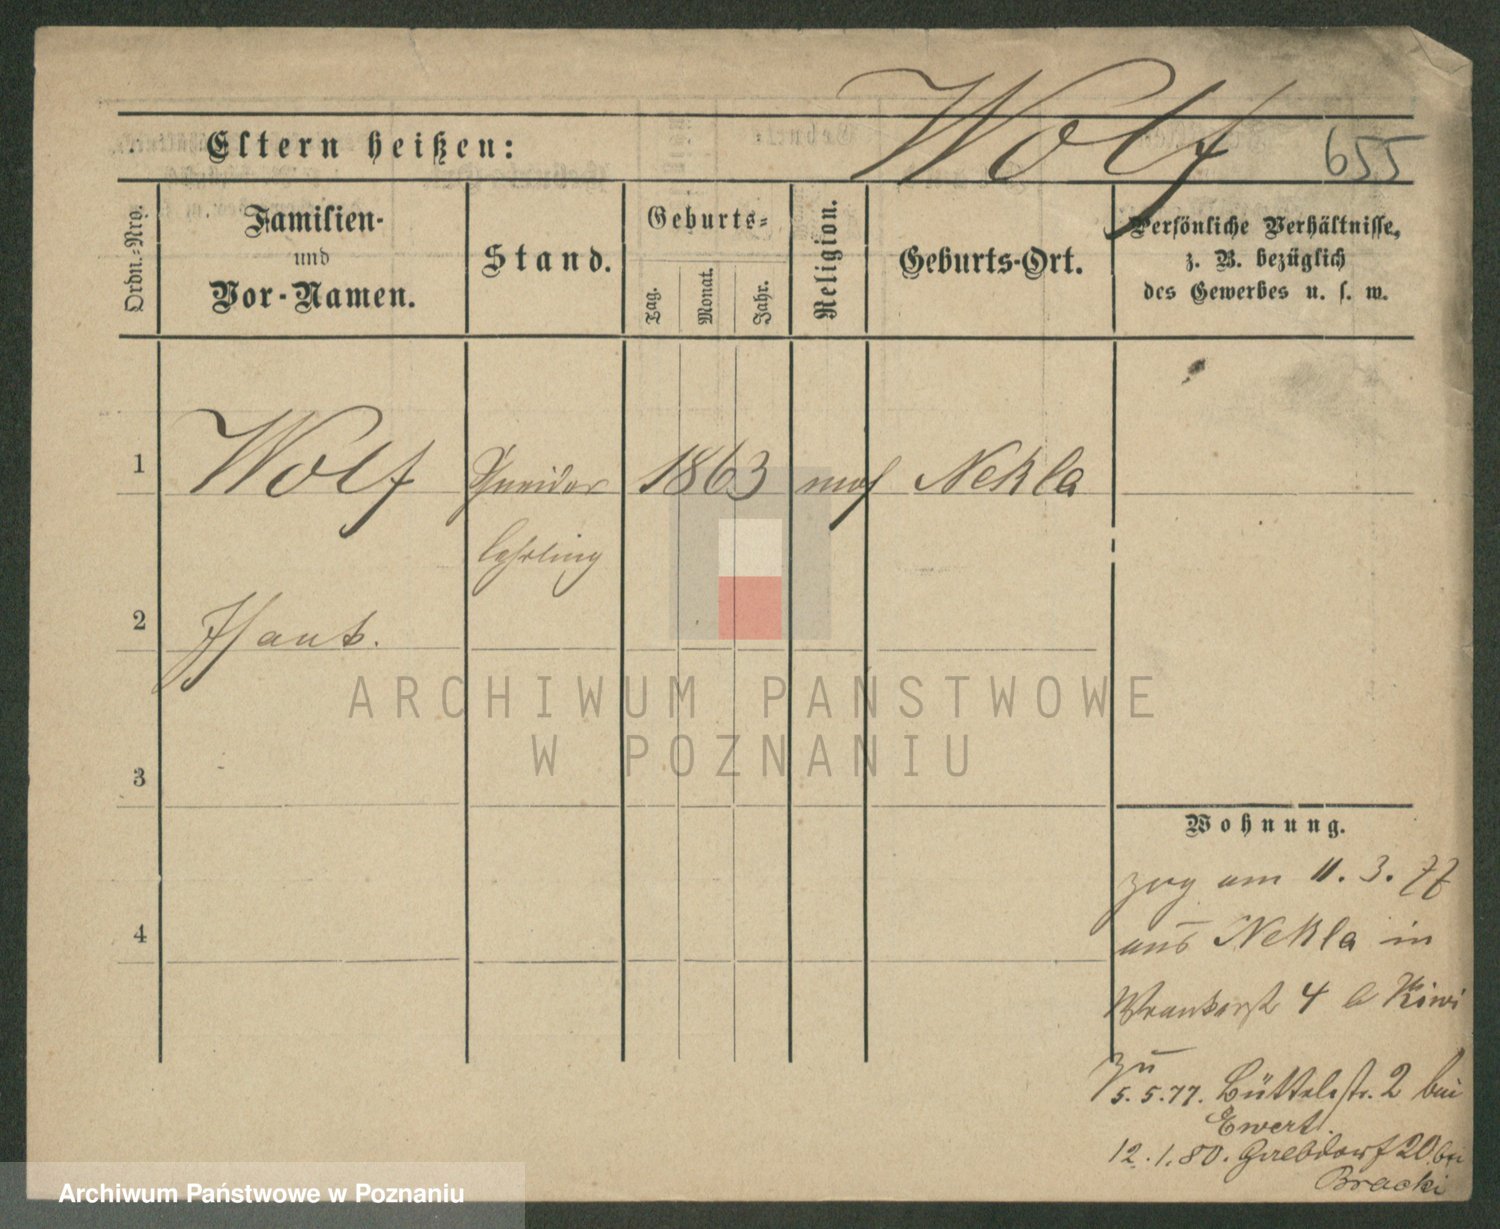 Wolf
655
Eltern heißen:
Ordn.-Nro.
Familien-
und
Vor-Namen.
Stand.
Geburts-
Tag.
Monat.
Jahr.
Religion.
Geburts-Ort.
Persönliche Verhältnisse,
z. B. bezüglich
des Gewerbes u. s. w.
1
Wolf
1863
mos
Nekla
lehrling
2
3
4
Wohnung.
zog am 11. 3. 77
aus Nekla in
4
zu
5. 5. 77. Büttelstr. 2 bei
Ewert.
12. 1. 80. 20 bei
Bracki
ARCHIWUM PAŃSTWOWE
W POZNANIU
Archiwum Państwowe w Poznaniu